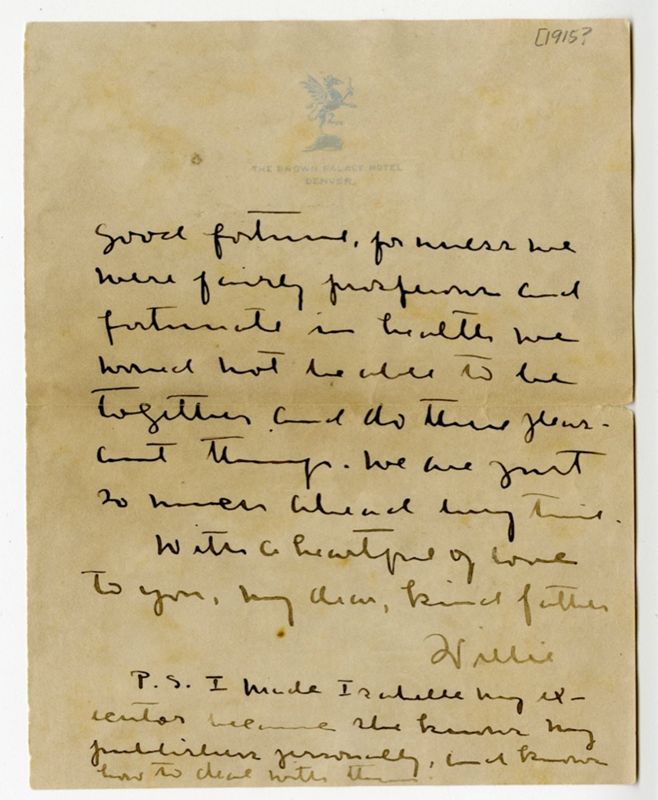 [1915?
THE BROWN PALACE HOTEL
DENVER.
good fortune, for unless we
were fairly prosperous and
fortunate in health we
would not be able to be
together and do these pleas-
ant things. We are just
so much ahead every time.
With a heartful of love
to you, my dear, kind father
Willie
P.S. I made Isabelle my ex-
ecutor because she knows my
publishers personally, and knows
how to deal with them.